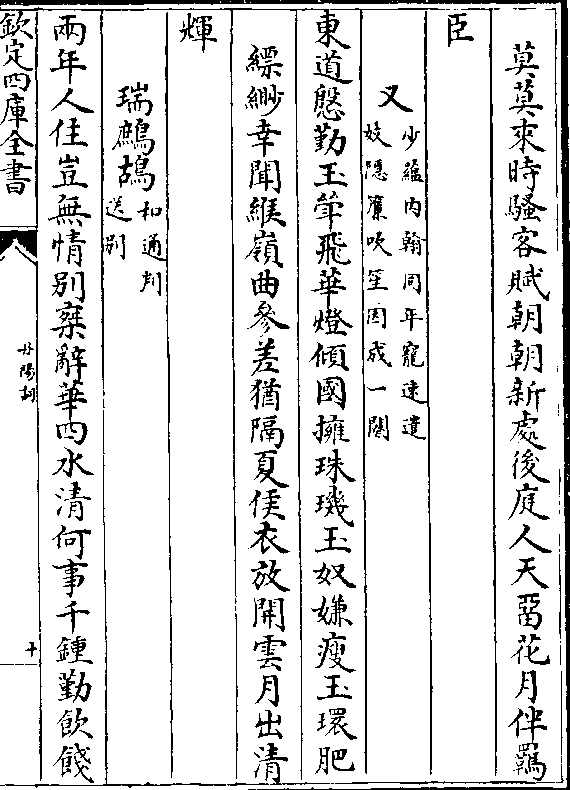 莫莫來時騷客賦朝朝新處後庭人天留花月伴羈
臣
又
少蘊内翰同年寵速遣
妓隠簾吹笙因成一闋
東道慇勤玉斚飛華燈傾國擁珠璣玉奴嫌瘦玉環肥
縹緲幸聞緱嶺曲參差猶隔夏侯衣放開雲月出清
輝
瑞鷓鴣
和通判
送别
兩年人住豈無情别葉辭華四水清何事千鍾勤飲餞
欽定四庫全書
丹陽詞
十